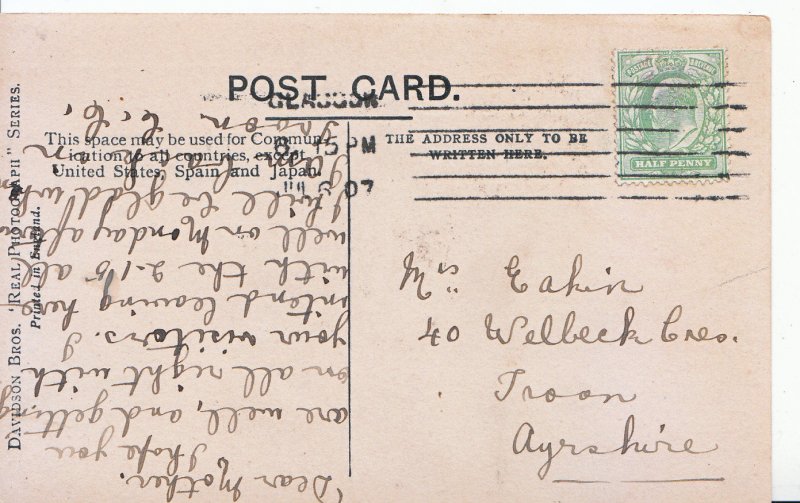 POST CARD.
GLASGOW
5 PM
07
This space may be used for Commun-
ication to all countries, except
United States, Spain and Japan.
THE ADDRESS ONLY TO BE
WRITTEN HERE.
POSTAGE
HALF PENNY
DAVIDSON BROS. "REAL PHOTOGRAPH" SERIES.
Printed in England.
Mrs Eakin
40 Welbeck Cres.
Troon
Ayrshire
Dear Mother.
I hope you
are well, and getting
on all right with
your visitors. I
intend leaving here
with the 2.15 all
well on Monday after
I will be glad